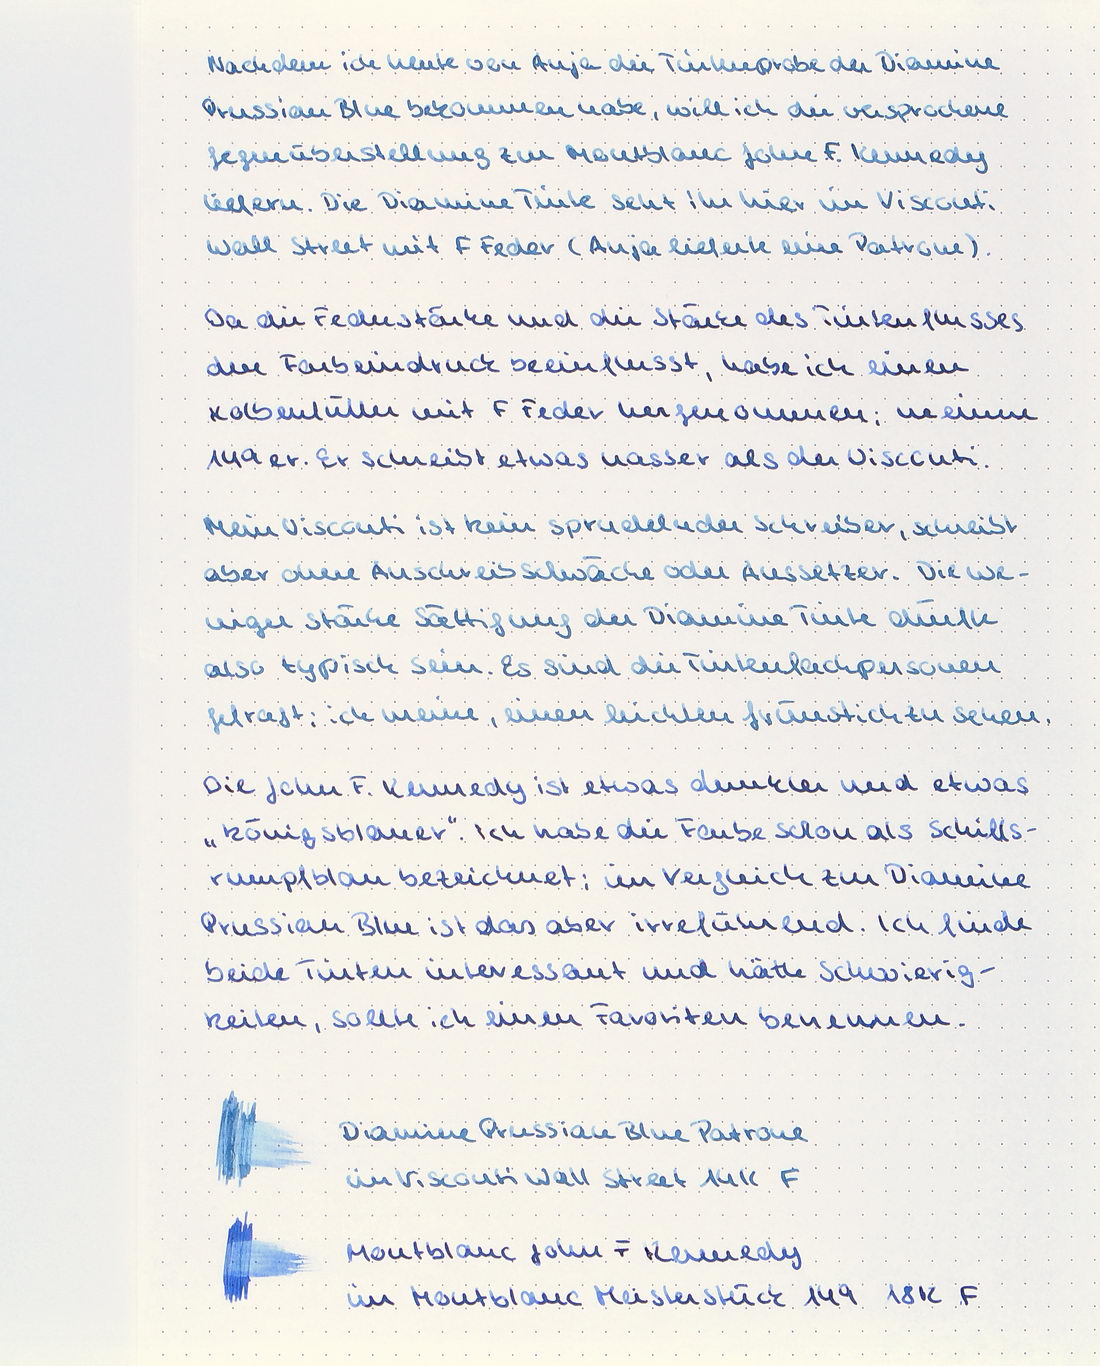 Nachdem ich heute von Anja die Tintenprobe der Diamine
Prussian Blue bekommen habe, will ich die versprochene
Gegenüberstellung zur Montblanc John F. Kennedy
liefern. Die Diamine Tinte seht ihr hier im Visconti
Wall Street mit F Feder (Anja lieferte eine Patrone).
Da die Federstärke und die Stärke des Tintenflusses
den Farbeindruck beeinflusst, habe ich einen
Kolbenfüller mit F Feder hergenommen; meinen
149er. Er schreibt etwas nasser als der Visconti.
Mein Visconti ist kein sprudelnder Schreiber, schreibt
aber ohne Anschreibschwäche oder Aussetzer. Die we-
niger starke Sättigung der Diamine Tinte dürfte
also typisch sein. Es sind die Tintenfachpersonen
gefragt; ich meine, einen leichten Grünstich zu sehen.
Die John F. Kennedy ist etwas dunkler und etwas
„königsblauer“. Ich habe die Farbe schon als Schiffs-
rumpfblau bezeichnet; im Vergleich zur Diamine
Prussian Blue ist das aber irreführend. Ich finde
beide Tinten interessant und hätte Schwierig-
keiten, sollte ich einen Favoriten benennen.
Diamine Prussian Blue Patrone
im Visconti Wall Street 14K F
Montblanc John F Kennedy
im Montblanc Meisterstück 149 18K F